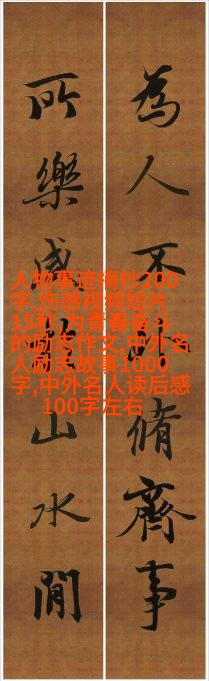 為人不外脩齊事
所樂咸山水間
人物事迹摘抄200
字,伤感视频短片
15秒,为青春奋斗
的励志作文,中外名
人励志故事1000
字,中外名人读后感
100字左右